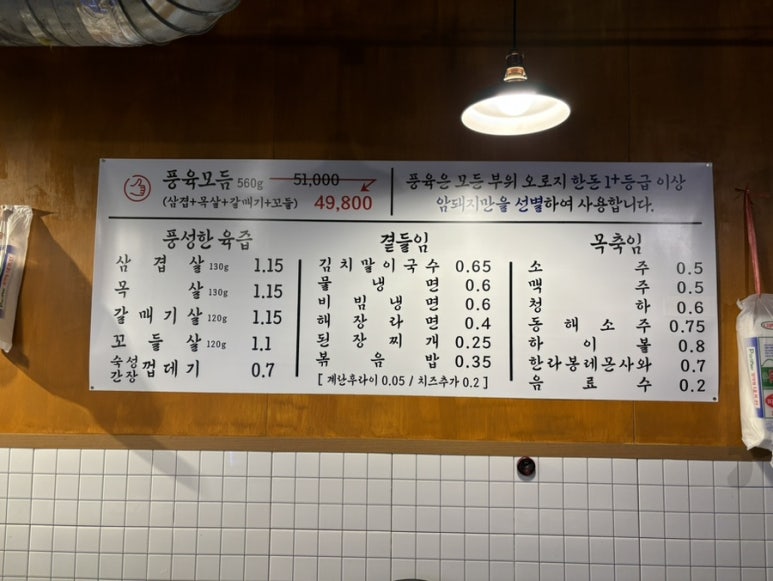 풍육모듬 560g 51,000
(삼겹+목살+갈매기+꼬들) 49,800
풍육은 모든 부위 오로지 한돈 1+등급 이상
암돼지만을 선별하여 사용합니다.
풍성한 육즙
삼겹살 130g 1.15
목살 130g 1.15
갈매기살 120g 1.15
꼬들살 120g 1.1
숙성간장 껍데기 0.7
곁들임
김치말이국수 0.65
물냉면 0.6
비빔냉면 0.6
해장라면 0.4
된장찌개 0.25
볶음밥 0.35
[ 계란후라이 0.05 / 치즈추가 0.2 ]
목축임
소주 0.5
맥주 0.5
청하 0.6
동해소주 0.75
하이볼 0.8
한라봉레몬사와 0.7
음료수 0.2